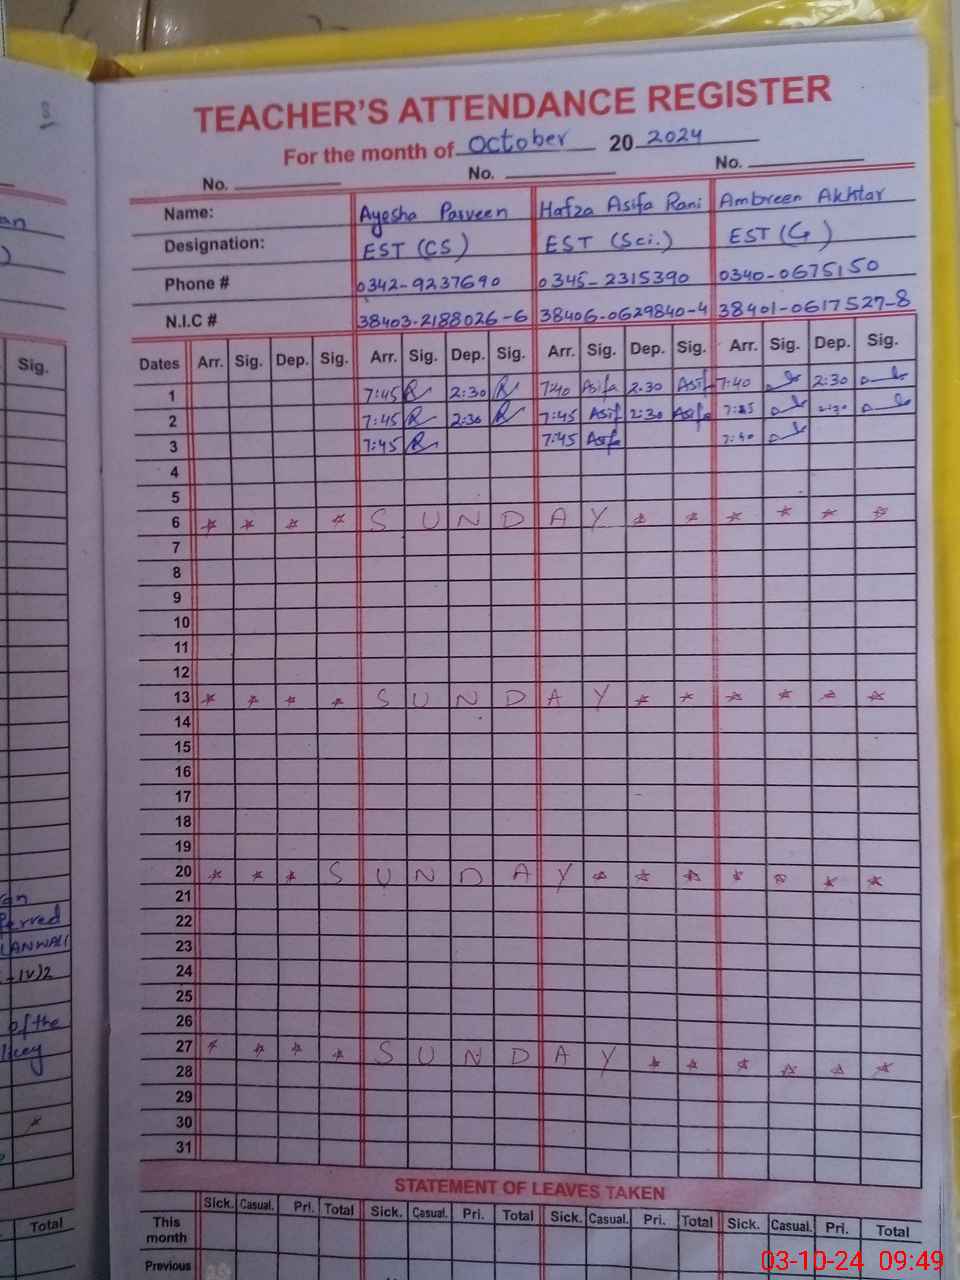 8
TEACHER'S ATTENDANCE REGISTER
For the month of October 20 2024
No. No. No.
an
Name: Ayesha Parveen Hafza Asifa Rani Ambreen Akhtar
)
Designation: EST (CS) EST (Sci.) EST (G)
Phone # 0342-9237690 0345-2315390 0340-0675150
N.I.C # 38403-2188026-6 38406-0629840-4 38401-0617527-8
Sig.
Dates Arr. Sig. Dep. Sig. Arr. Sig. Dep. Sig. Arr. Sig. Dep. Sig. Arr. Sig. Dep. Sig.
1 7:45 2:30 7:40 Asifa 2:30 Asif 7:40 2:30
2 7:45 2:30 7:45 Asif 2:30 Asifa 2:30
3 7:45 7:45 Asifa 7:40
4
5
6 * * * * S U N D A Y * * * * * *
7
8
9
10
11
12
13 * * * * S U N D A Y * * * * * *
14
15
16
17
18
19
20 * * * S U N D A Y * * * * * * *
21
22
ferred
23
24
-IV)2
25
26
of the
27 * * * * S U N D A Y * * * * * *
licy
28
29
30
31
STATEMENT OF LEAVES TAKEN
Sick. Casual. Pri. Total Sick. Casual. Pri. Total Sick. Casual. Pri. Total Sick. Casual. Pri. Total
Total
This
month
Previous
03-10-24 09:49